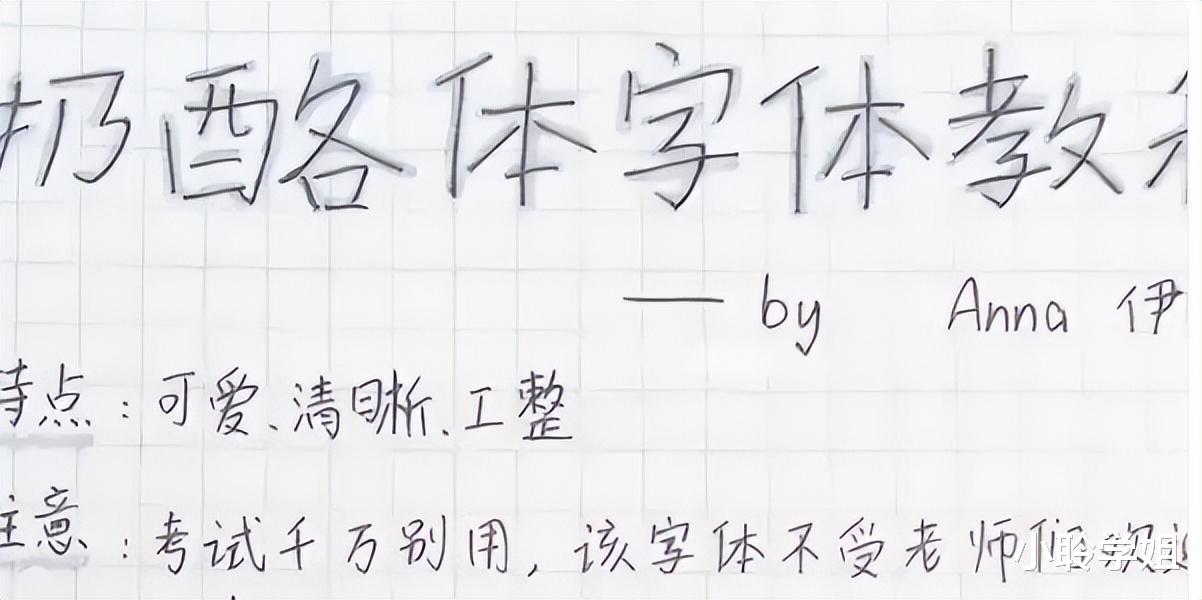 奶酪体字体教程
—— by Anna 伊
特点：可爱、清晰、工整
注意：考试千万别用，该字体不受老师们欢迎
小聆学姐